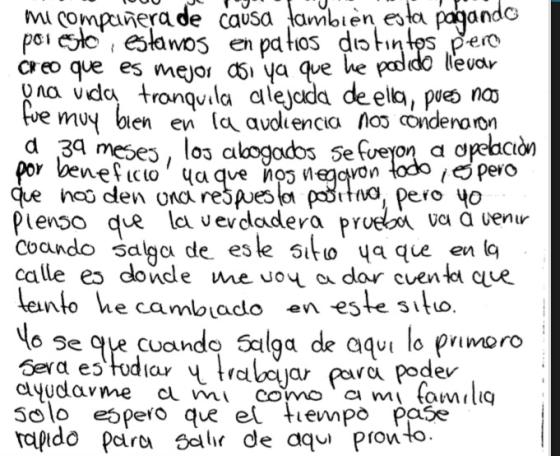 mi compañera de causa también esta pagando
por esto, estamos en patios distintos pero
creo que es mejor asi ya que he podido llevar
una vida tranquila alejada de ella, pues nos
fue muy bien en la audiencia nos condenaron
a 39 meses, los abogados se fueron a apelación
por beneficio ya que nos negaron todo, espero
que nos den una respuesta positiva, pero yo
pienso que la verdadera prueba va a venir
cuando salga de este sitio ya que en la
calle es donde me voy a dar cuenta que
tanto he cambiado en este sitio.
Yo se que cuando salga de aqui lo primero
sera estudiar y trabajar para poder
ayudarme a mi como a mi familia
solo espero que el tiempo pase
rapido para salir de aqui pronto.